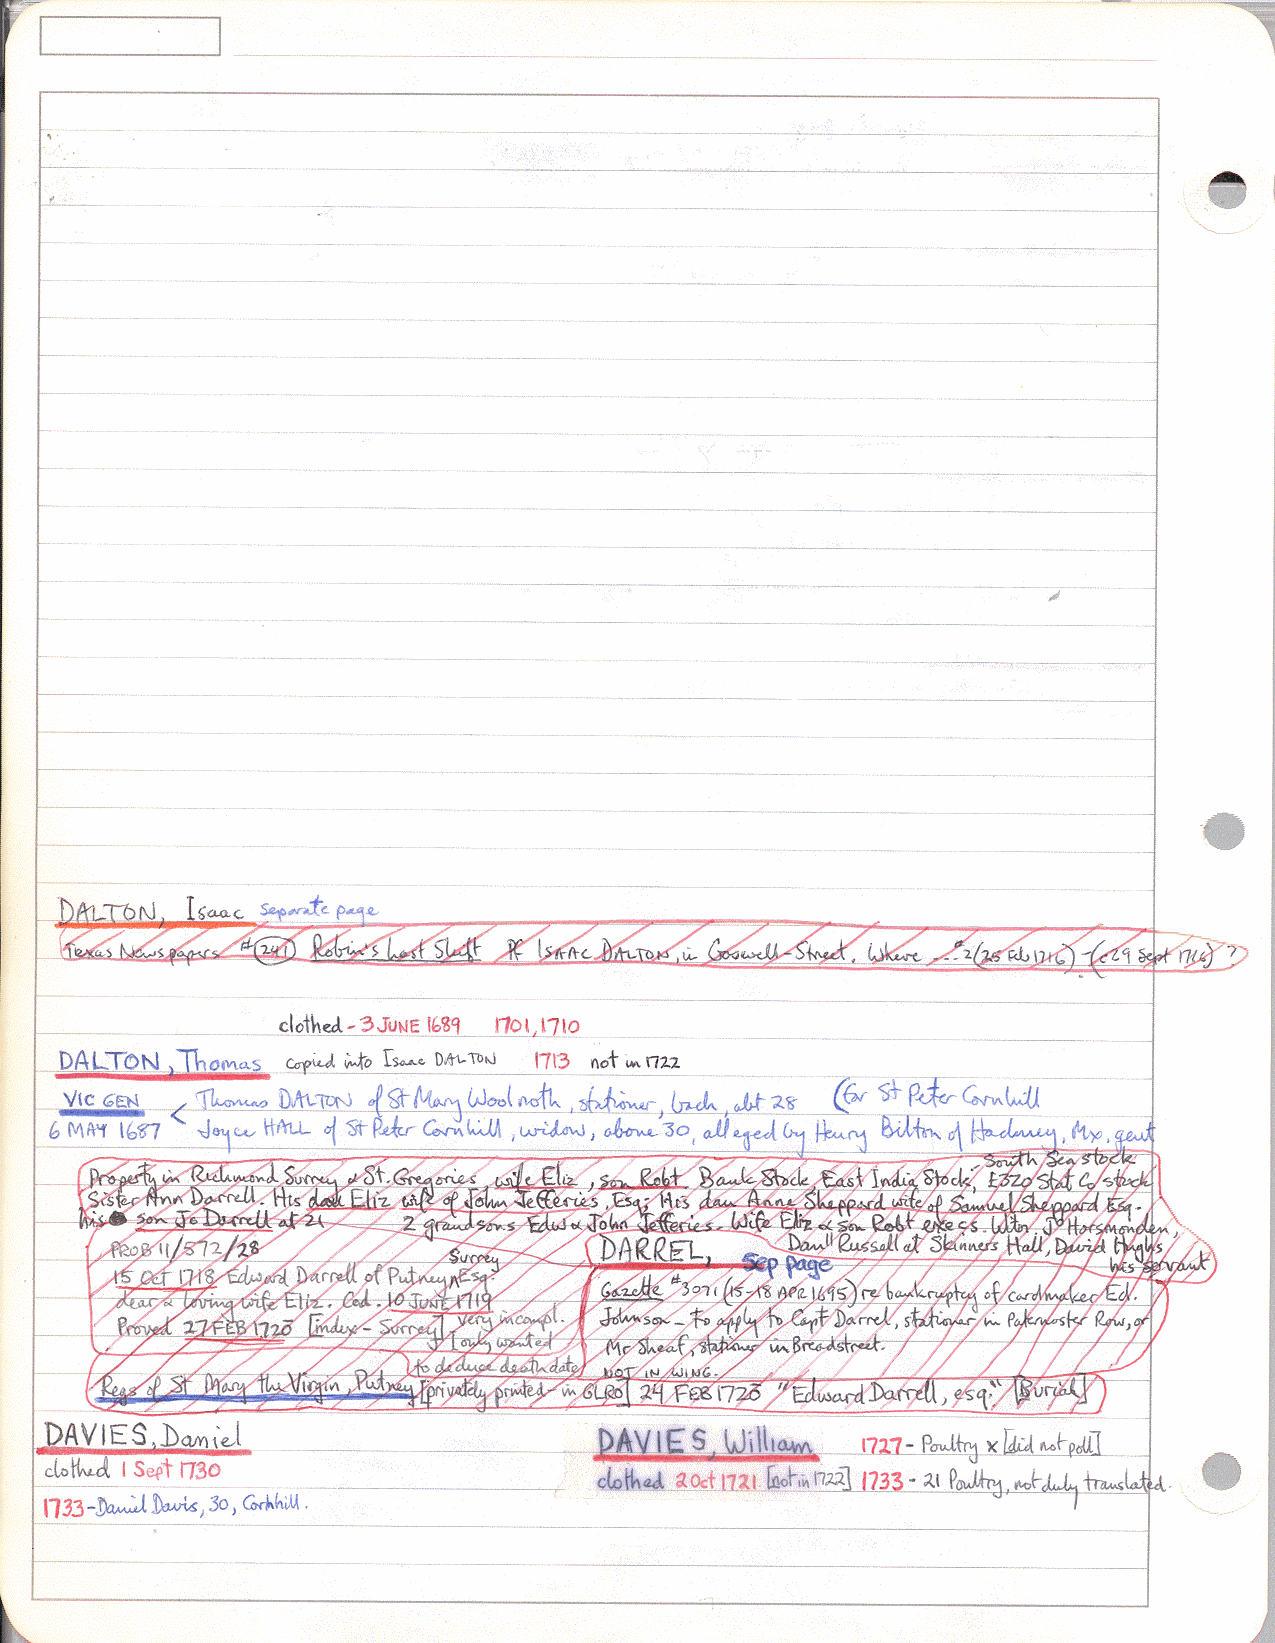 DALTON, Isaac separate page
Texas Newspapers #(241) Robin's Last Shift Pf ISAAC DALTON, in Goswell-Street. Where ... #2(25 Feb 1716) - (29 Sept 1716) ?
clothed - 3 JUNE 1689 1701, 1710
DALTON, Thomas copied into Isaac DALTON 1713 not in 1722
VIC GEN < Thomas DALTON of St Mary Woolnoth, stationer, bach, abt 28 (for St Peter Cornhill
6 MAY 1687 Joyce HALL of St Peter Cornhill, widow, above 30, alleged by Henry Bilton of Hackney, Mx, gent
South Sea stock
Property in Richmond Surrey & St. Gregories, wife Eliz, son Robt. Bank Stock, East India Stock, £320 Stat Co stock
Sister Ann Darrell. His Eliz wife of John Jefferies, Esq; His dau Anne Sheppard wife of Samuel Sheppard Esq.
his son Jo Darrell at 21 2 grandsons Edw & John Jefferies. Wife Eliz & son Robt execs. Witn. Jº Horsmonden,
PROB 11/572/28 DARREL, Sep page Danll Russall at Skinners Hall, David Hughs
his servant
15 Oct 1718 Edward Darrell of Putney Surrey Esq.
dear & loving wife Eliz. Cod. 10 JUNE 1719
Proved 27 FEB 1720 [index - Surrey] very incompl.
I only wanted
to deduce death date
Gazette #3071 (15-18 APR 1695) re bankruptcy of cardmaker Ed.
Johnson - to apply to Capt Darrel, stationer in Paternoster Row, or
Mr Sheaf, stationer in Breadstreet.
NOT IN WING.
Regs of St Mary the Virgin, Putney [privately printed - in GLRO] 24 FEB 1720 "Edward Darrell, esq." [Burial]
DAVIES, Daniel
clothed 1 Sept 1730
1733 - Daniel Davis, 30, Cornhill.
DAVIES, William 1727 - Poultry x [did not poll]
clothed 2 Oct 1721 [not in 1722] 1733 - 21 Poultry, not duly translated.